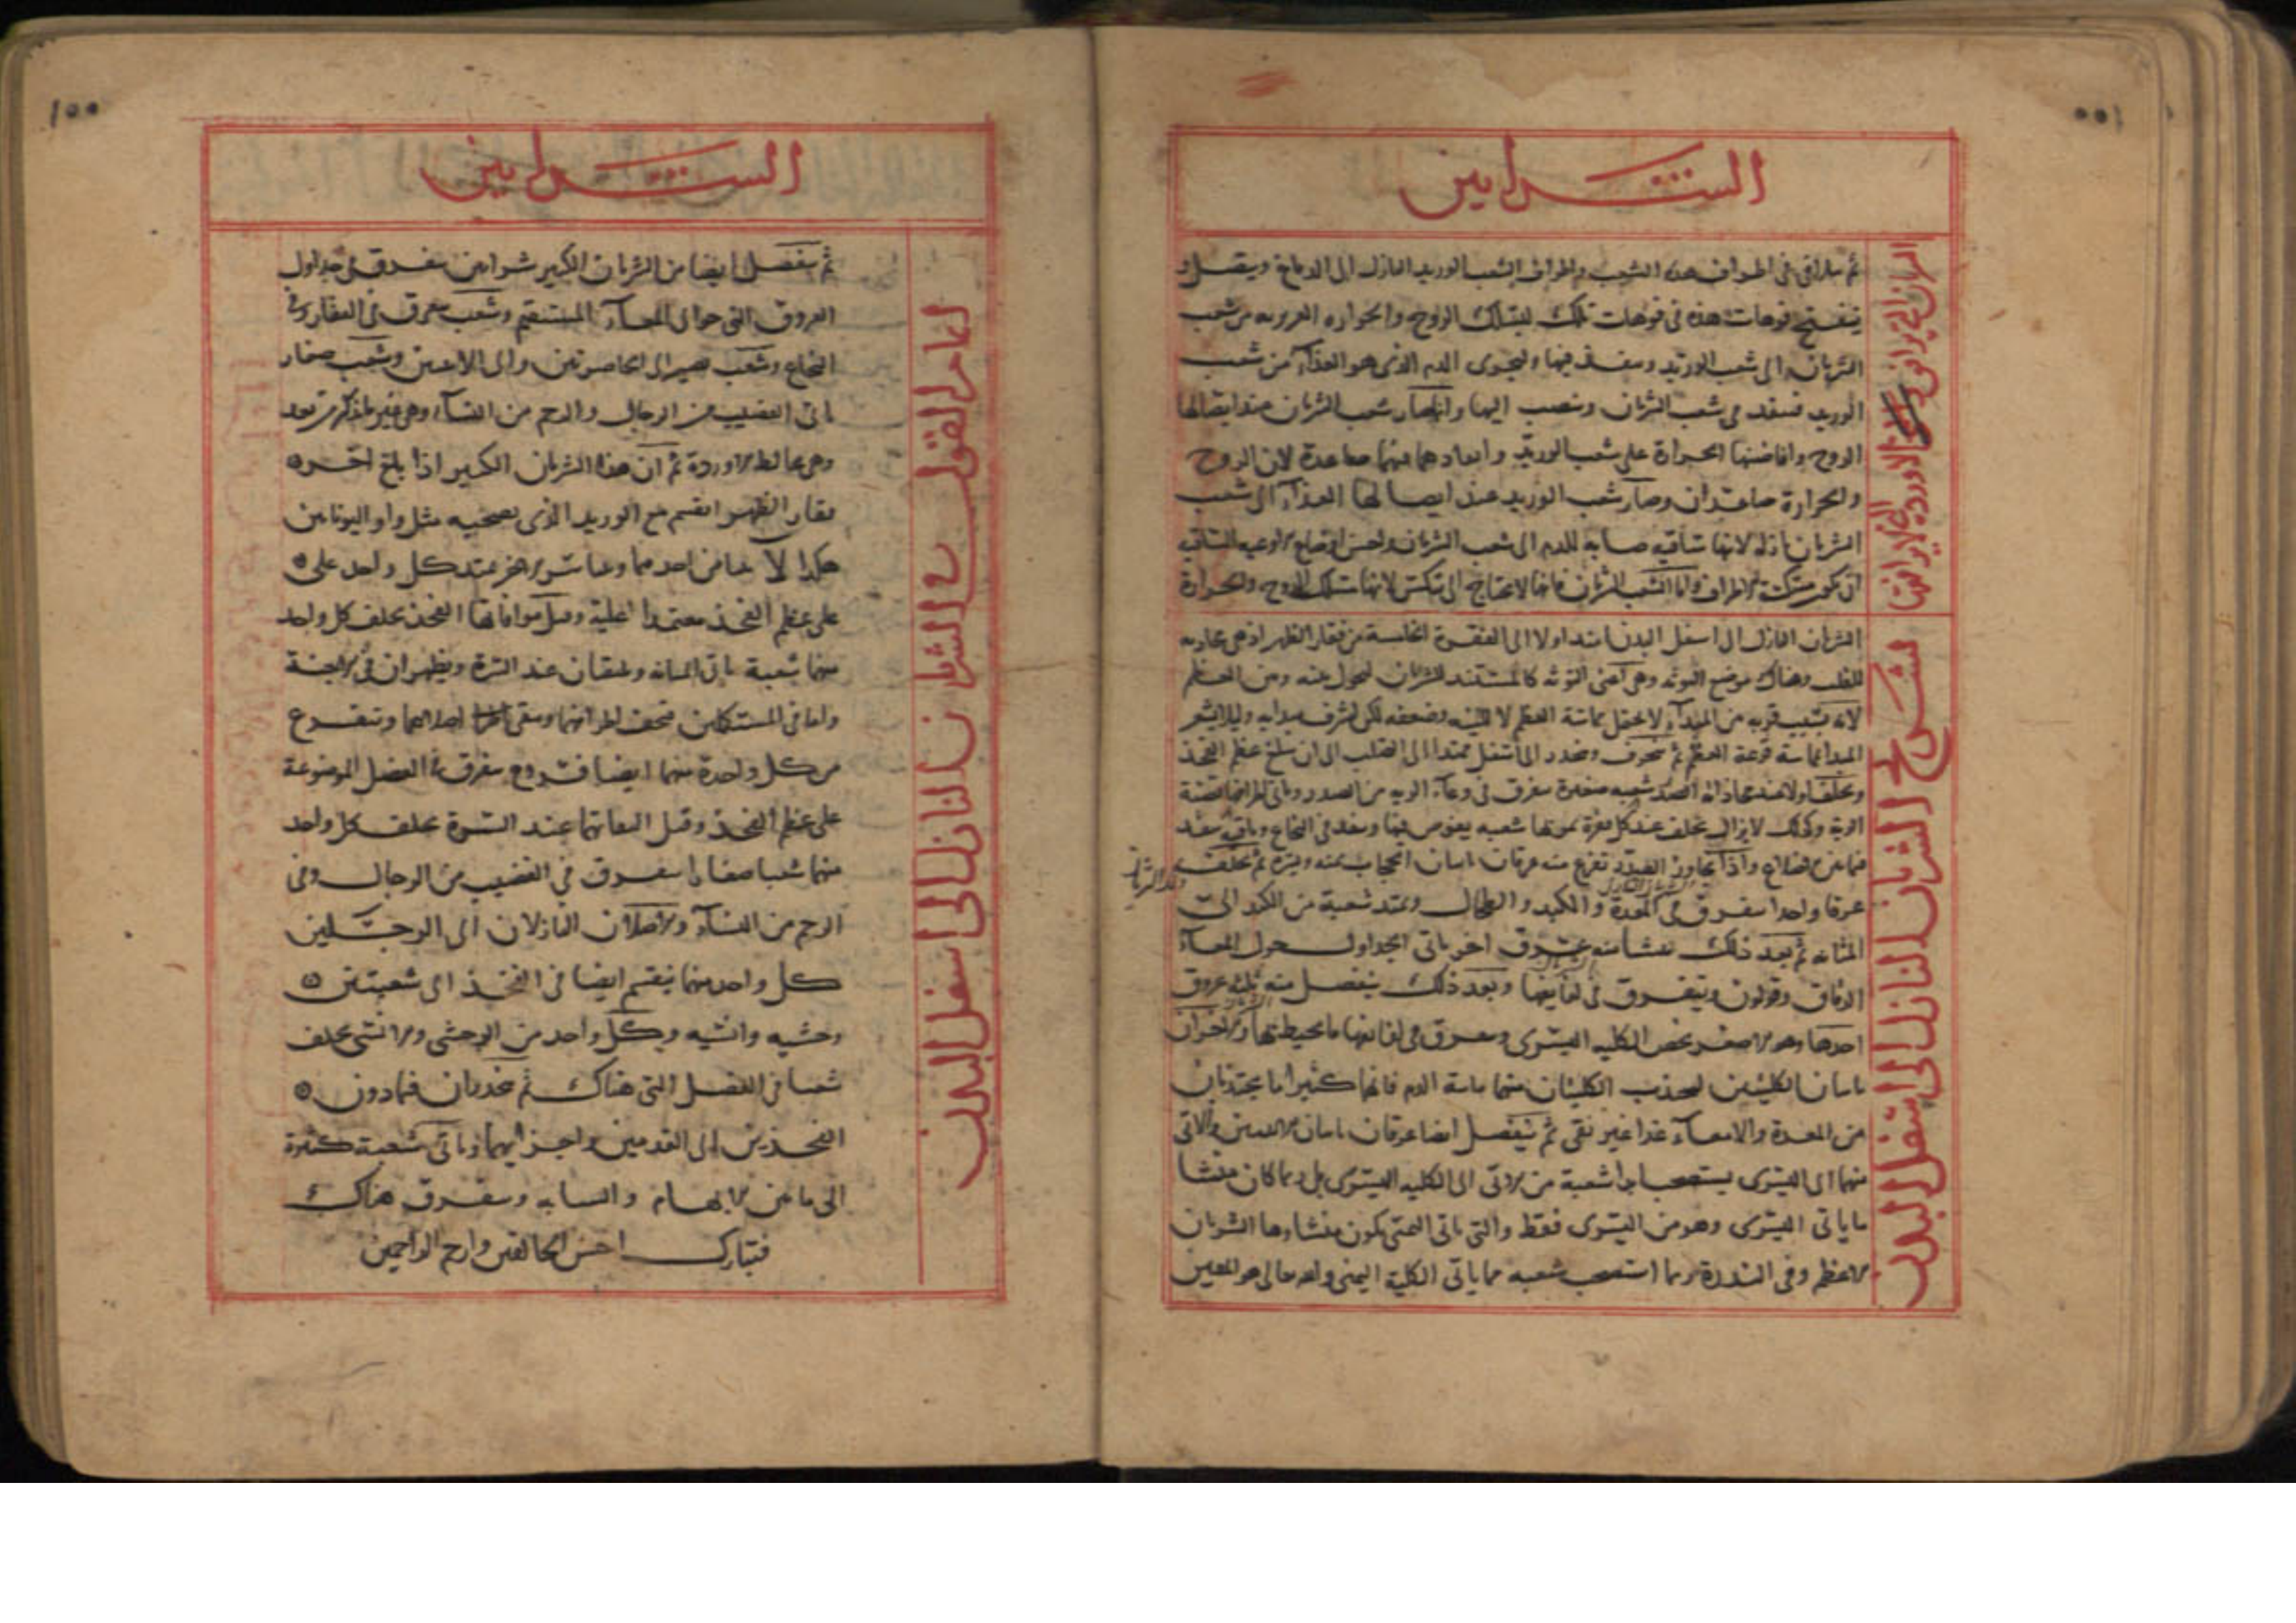 الشرايين
ثم يتلاقى في اطراف هذه الشعب واطراف الشعب الوريد النازل الى الدماغ ويتصل و
ينفتح فوهات هذه في فوهات تلك ليسلك الروح والحرارة الغريزية من شعب
الشريان الى شعب الوريد وينفذ فيها وليجرى الدم الذى هو الغذاء من شعب
الوريد فينفذ فى شعب الشريان وينصب اليها وانها شعب الشريان عند ايصالها
الروح وافاضتها الحرارة على شعب الوريد صاعدة لان الروح
والحرارة صاعدان وصار شعب الوريد عند ايصالها الغذاء الى شعب
الشريان نازلة لانها ساقية صابة للدم الى شعب الشريان واحسن اوضاع الاوعية الساقية
ان تكون منكسة الاطراف واما شعب الشريان فانها لا تحتاج الى تنكس لانها تسلك الروح والحرارة
تشريح الشريان النازل الى اسفل البدن
الشريان النازل الى اسفل البدن يمتد اولا الى الفقرة الخامسة من فقار الظهر اذ هى محاذية
للقلب وهناك موضع التوثة وهى اعنى التوثة كالمستند للشريان ليحول بينه وبين العظم
ثم ينحرف وينحدر الى اسفل ممتدا الى الصلب الى ان يبلغ عظم العجز
ويخلف اولا عند محاذاته الصدر شعبة صغيرة يتفرق فى وعاء الرية من الصدر وياتى اطرافها قصبة
الرية وكذلك لا يزال يخلف عند كل فقرة يمر بها شعبة يغوص فيها وينفذ فى النخاع وباق ينفذ
فيما بين الاضلاع واذا يجاوز الصدر تفرع منه عرقان ياتيان الحجاب يمنة ويسرة ثم يخلف
عرقا واحدا يتفرق فى المعدة والكبد والطحال ويمتد شعبة من الكبد الى
المثانة ثم بعد ذلك ينشأ منه عرق اخر ياتى الجداول حول المعاء
الدقاق وقولون ويتفرق فى لفايفها وبعد ذلك ينفصل منه ثلثة عروق
احدها وهو الاصغر يخص الكلية اليسرى ويتفرق فى لفايفها وما يحيط بها والاخران
ياتيان الكليتين ليجذب الكليتان منهما ماية الدم فانهما كثيرا ما يجتذبان
من المعدة والامعاء غذاء غير نقى ثم ينفصل ايضا عرقان ياتيان الانثيين والاتى
منهما الى اليسرى يستصحب ابدا شعبة من الاتى الى الكلية اليسرى بل ربما كان منشأ
ما ياتى اليسرى وهو من اليسرى فقط والتى ياتى اليمنى يكون منشاؤها الشريان
الاعظم وفى الندرة ربما استصحب شعبة مما ياتى الكلية اليمنى والله تعالى هو المعين
١٠٠
الشرايين
تمام القول فى الشريان النازل الى اسفل البدن
ثم ينفصل ايضا من الشريان الكبير شرايين يتفرق فى جداول
العروق التى حوالى المعاء المستقيم وشعب يتفرق فى الفقار وفى
النخاع وشعب يصير الى الخاصرتين والى الانثيين وشعب صغار
ياتى القضيب من الرجال والرحم من النساء وهى غير ما ذكر من بعد
وهى يخالط الاوردة ثم ان هذا الشريان الكبير اذا بلغ اخر
فقار الظهر انقسم مع الوريد الذى يصحبه مثل واو اليونانيين
هكذا Λ يتيامن احدهما ويتياسر الاخر يمتد كل واحد على
على عظم العجز معتمدا عليه وقبل موافاتها الفخذ يخلف كل واحد
منهما شعبة ياتى المثانة ويلتقيان عند السرة ويظهران فى الاجنة
واما فى المستكملين فيجف اطرافهما ويبقى اصلاهما ويتفرع
من كل واحدة منهما ايضا فروع يتفرق فى العضل الموضوعة
على عظم العجز وقبل التقائهما عند السرة يخلف كل واحد
منهما شعبا صغارا يتفرق فى القضيب من الرجال وفى
الرحم من النساء والاصلان النازلان الى الرجلين
كل واحد منهما ينقسم ايضا فى الفخذ الى شعبتين
وحشية وانسية وكل واحد من الوحشى والانسى يخلف
شعبا فى العضل التى هناك ثم ينحدران فيما دون
الفخذين الى القدمين واجزائهما وياتى شعبة كثيرة
الى ما بين الابهام والسبابة ويتفرق هناك
فتبارك احسن الخالقين وارحم الراحمين
١٠٠